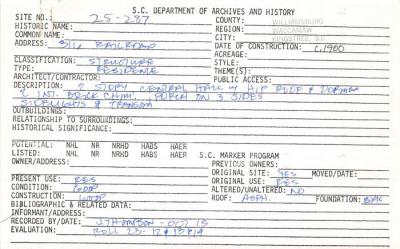 S.C. DEPARTMENT OF ARCHIVES AND HISTORY
SITE NO.: 25-287 COUNTY: WILLIAMSBURG
HISTORIC NAME: REGION: WACCAMAW
COMMON NAME: CITY: KINGSTREE, S.C.
ADDRESS: 316 RAILROAD DATE OF CONSTRUCTION: C.1900
ACREAGE:
CLASSIFICATION: STRUCTURE STYLE:
TYPE: RESIDENCE THEME(S):
ARCHITECT/CONTRACTOR: PUBLIC ACCESS:
DESCRIPTION: 2 STORY CENTRAL HALL W HIP ROOF & DORMER
2 INT. BRICK CHIM. PORCH ON 3 SIDES
SIDELIGHTS & TRANSOM
OUTBUILDINGS:
RELATIONSHIP TO SURROUNDINGS:
HISTORICAL SIGNIFICANCE:
POTENTIAL: NHL NR NRHD HABS HAER
LISTED: NHL NR NRHD HABS HAER S.C. MARKER PROGRAM
OWNER/ADDRESS: PREVIOUS OWNERS:
ORIGINAL SITE: YES MOVED/DATE:
PRESENT USE: RES ORIGINAL USE: RES
CONDITION: GOOD ALTERED/UNALTERED: NO
CONSTRUCTION: WOOD ROOF: ASPH. FOUNDATION:
BIBLIOGRAPHIC & RELATED DATA:
INFORMANT/ADDRESS:
RECORDED BY/DATE:
EVALUATION: ROLL 25-12 # 13 & 14